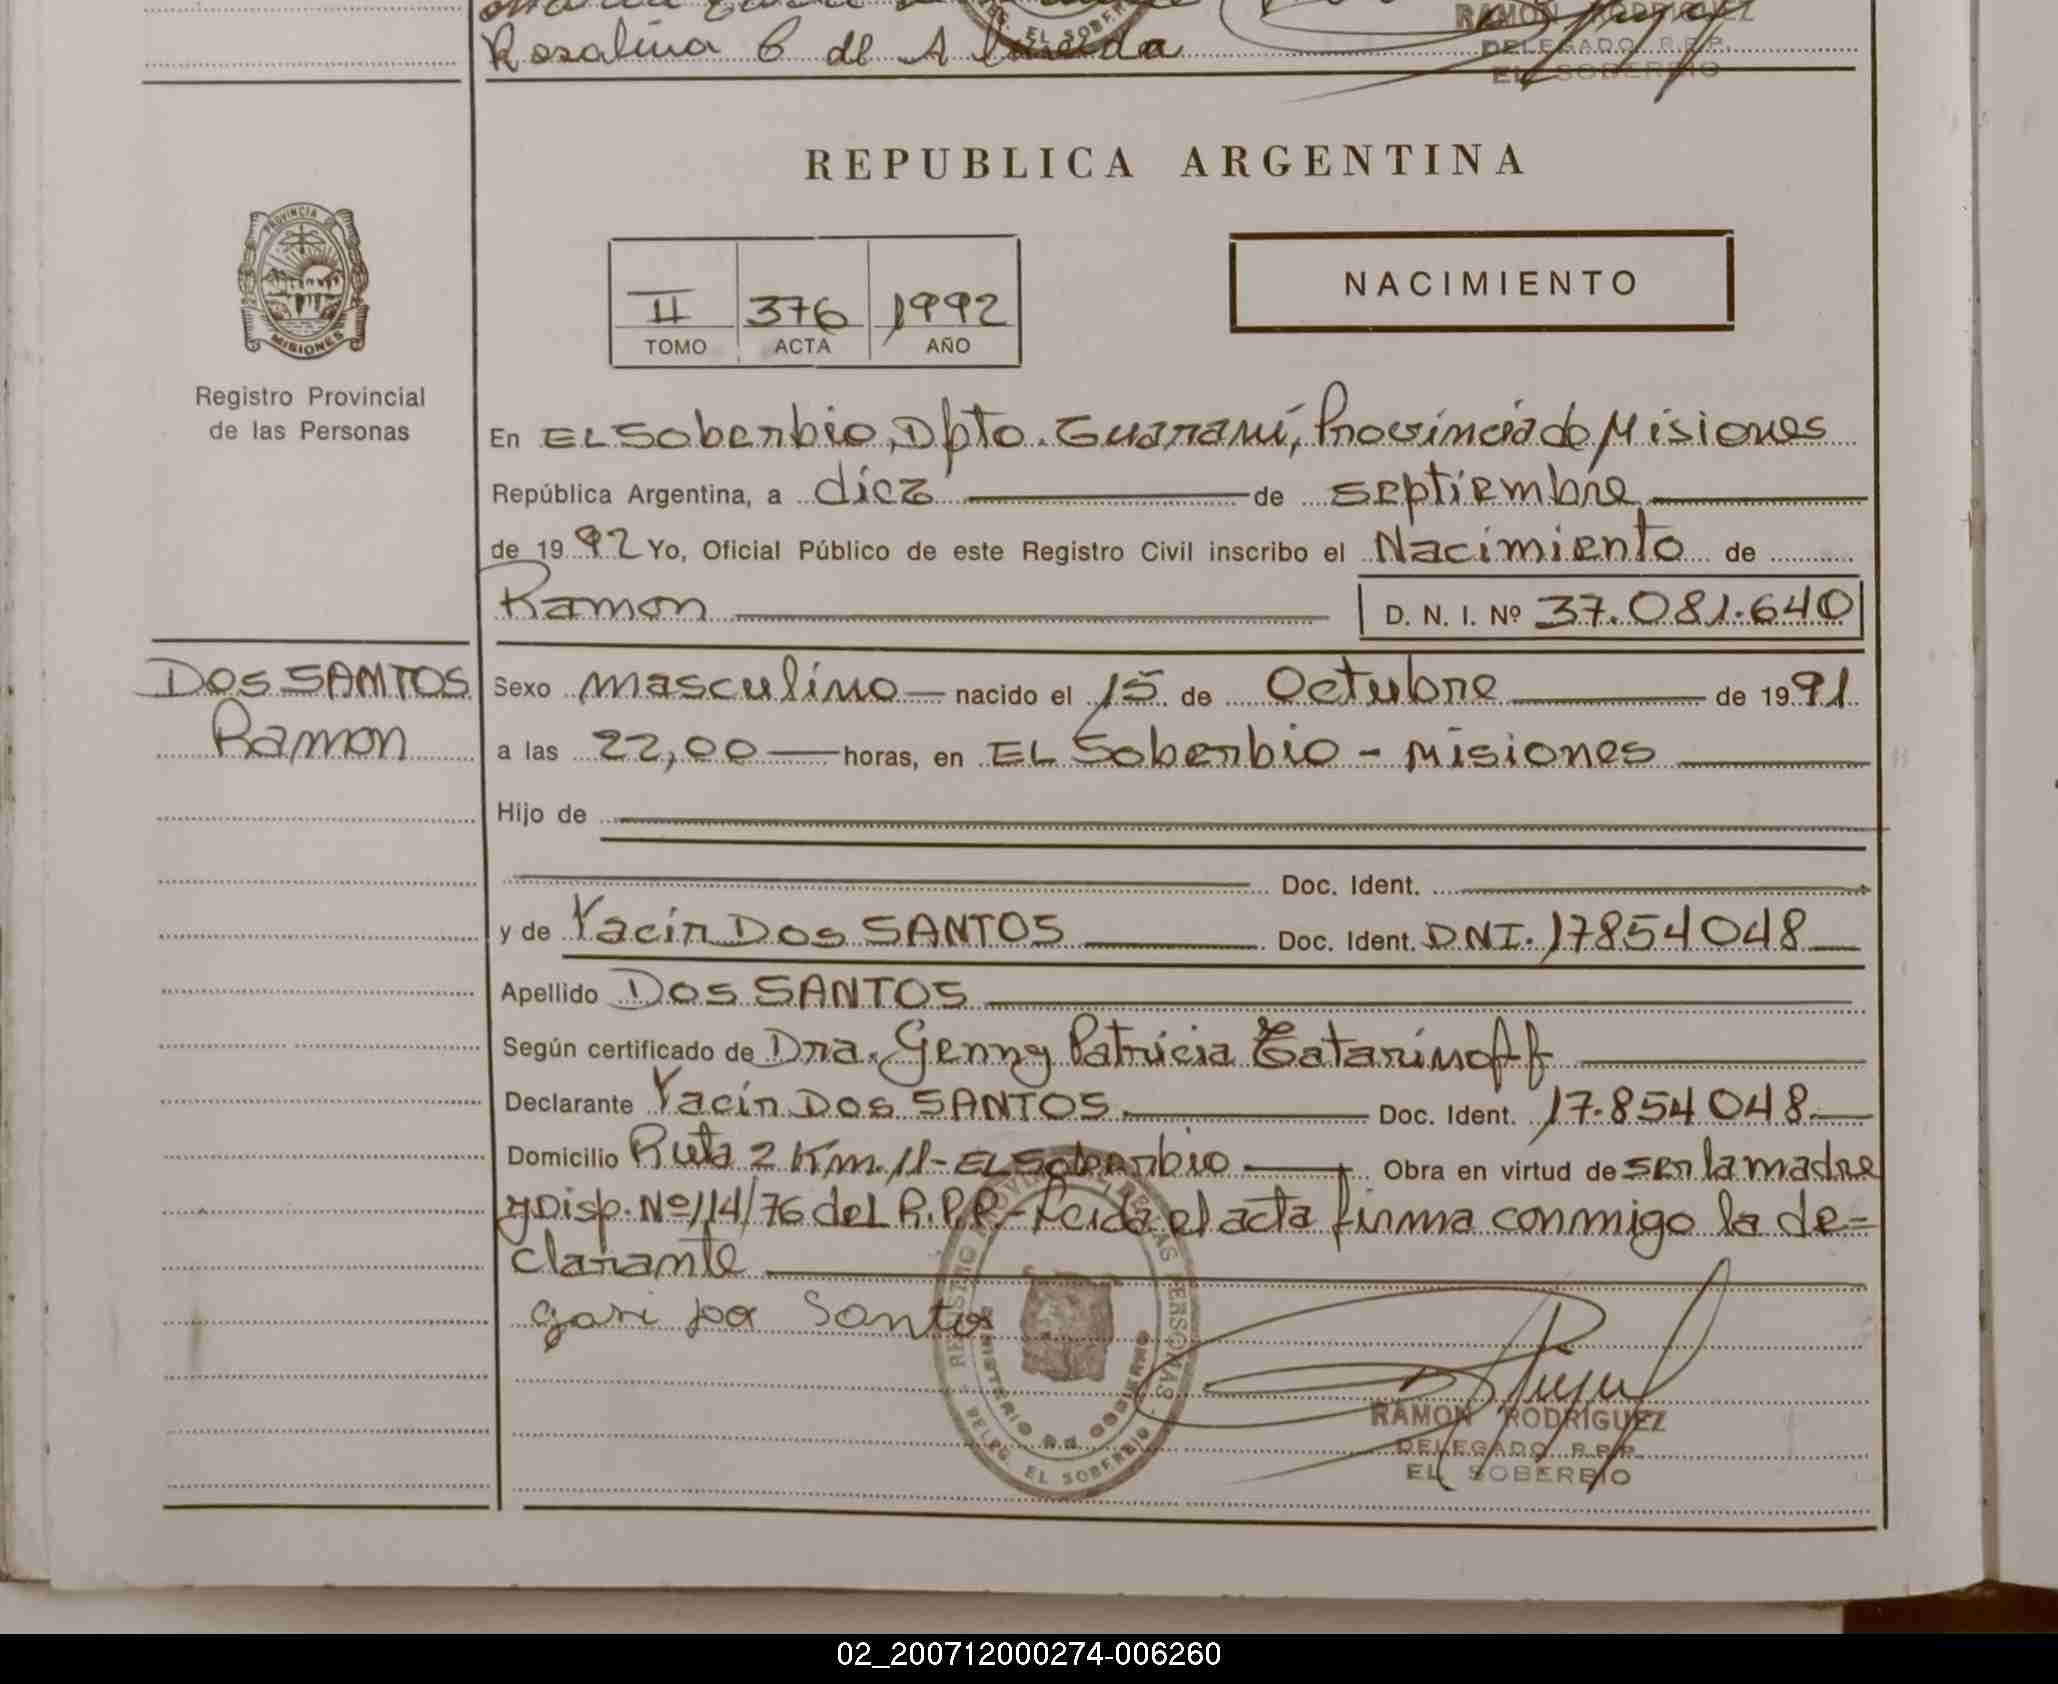 Rosalina C de Almeida
RAMON RODRIGUEZ
DELEGADO R.P.P.
EL SOBERBIO
REPUBLICA ARGENTINA
PROVINCIA
MISIONES
Registro Provincial
de las Personas
II 376 1992
TOMO ACTA AÑO
NACIMIENTO
En EL Soberbio, Dpto. Guaraní, Provincia de Misiones
República Argentina, a diez de septiembre
de 1992 Yo, Oficial Público de este Registro Civil inscribo el Nacimiento de
Ramon D. N. I. Nº 37.081.640
DOS SANTOS
Ramon
Sexo masculino nacido el 15 de Octubre de 1991
a las 22,00 horas, en EL Soberbio - Misiones
Hijo de
Doc. Ident.
y de Yacir DOS SANTOS Doc. Ident. DNI. 17854048
Apellido DOS SANTOS
Según certificado de Dra. Genny Patricia Tatarinoff
Declarante Yacir DOS SANTOS Doc. Ident. 17.854048
Domicilio Ruta 2 Km. 11 - EL Soberbio Obra en virtud de ser la madre
y Disp. Nº 114/76 del R.P.P. - Leida el acta firma conmigo la de=
clarante
Santos
REGISTRO PROVINCIAL DE LAS PERSONAS
MINISTERIO DE GOBIERNO
DELEG. EL SOBERBIO
RAMON RODRIGUEZ
DELEGADO R.P.P.
EL SOBERBIO
02_200712000274-006260